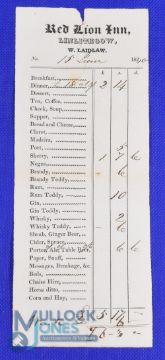 Red Lion Inn,
LINLITHGOW,
W. LAIDLAW.
No. 18 June 18
Breakfast,
Dinner, 2 14
Dessert,
Tea, Coffee,
Cheek, Soup,
Supper,
Bread and Cheese,
Claret,
Madeira,
Port,
Sherry, 1 7 6
Negus,
Brandy, 6
Brandy Toddy,
Rum,
Rum Toddy, 10
Gin,
Gin Toddy,
Whisky, 2
Whisky Toddy, 6
Shrub, Ginger Beer,
Cider, Spruce,
Porter, Ale, Table Beer, 6 6
Paper, Snuff,
Messages, Breakage, &c
Beds,
Chaise Hire,
Horse ditto,
Corn and Hay,
MULLOCK
JONES
Auctioneers & Valuers